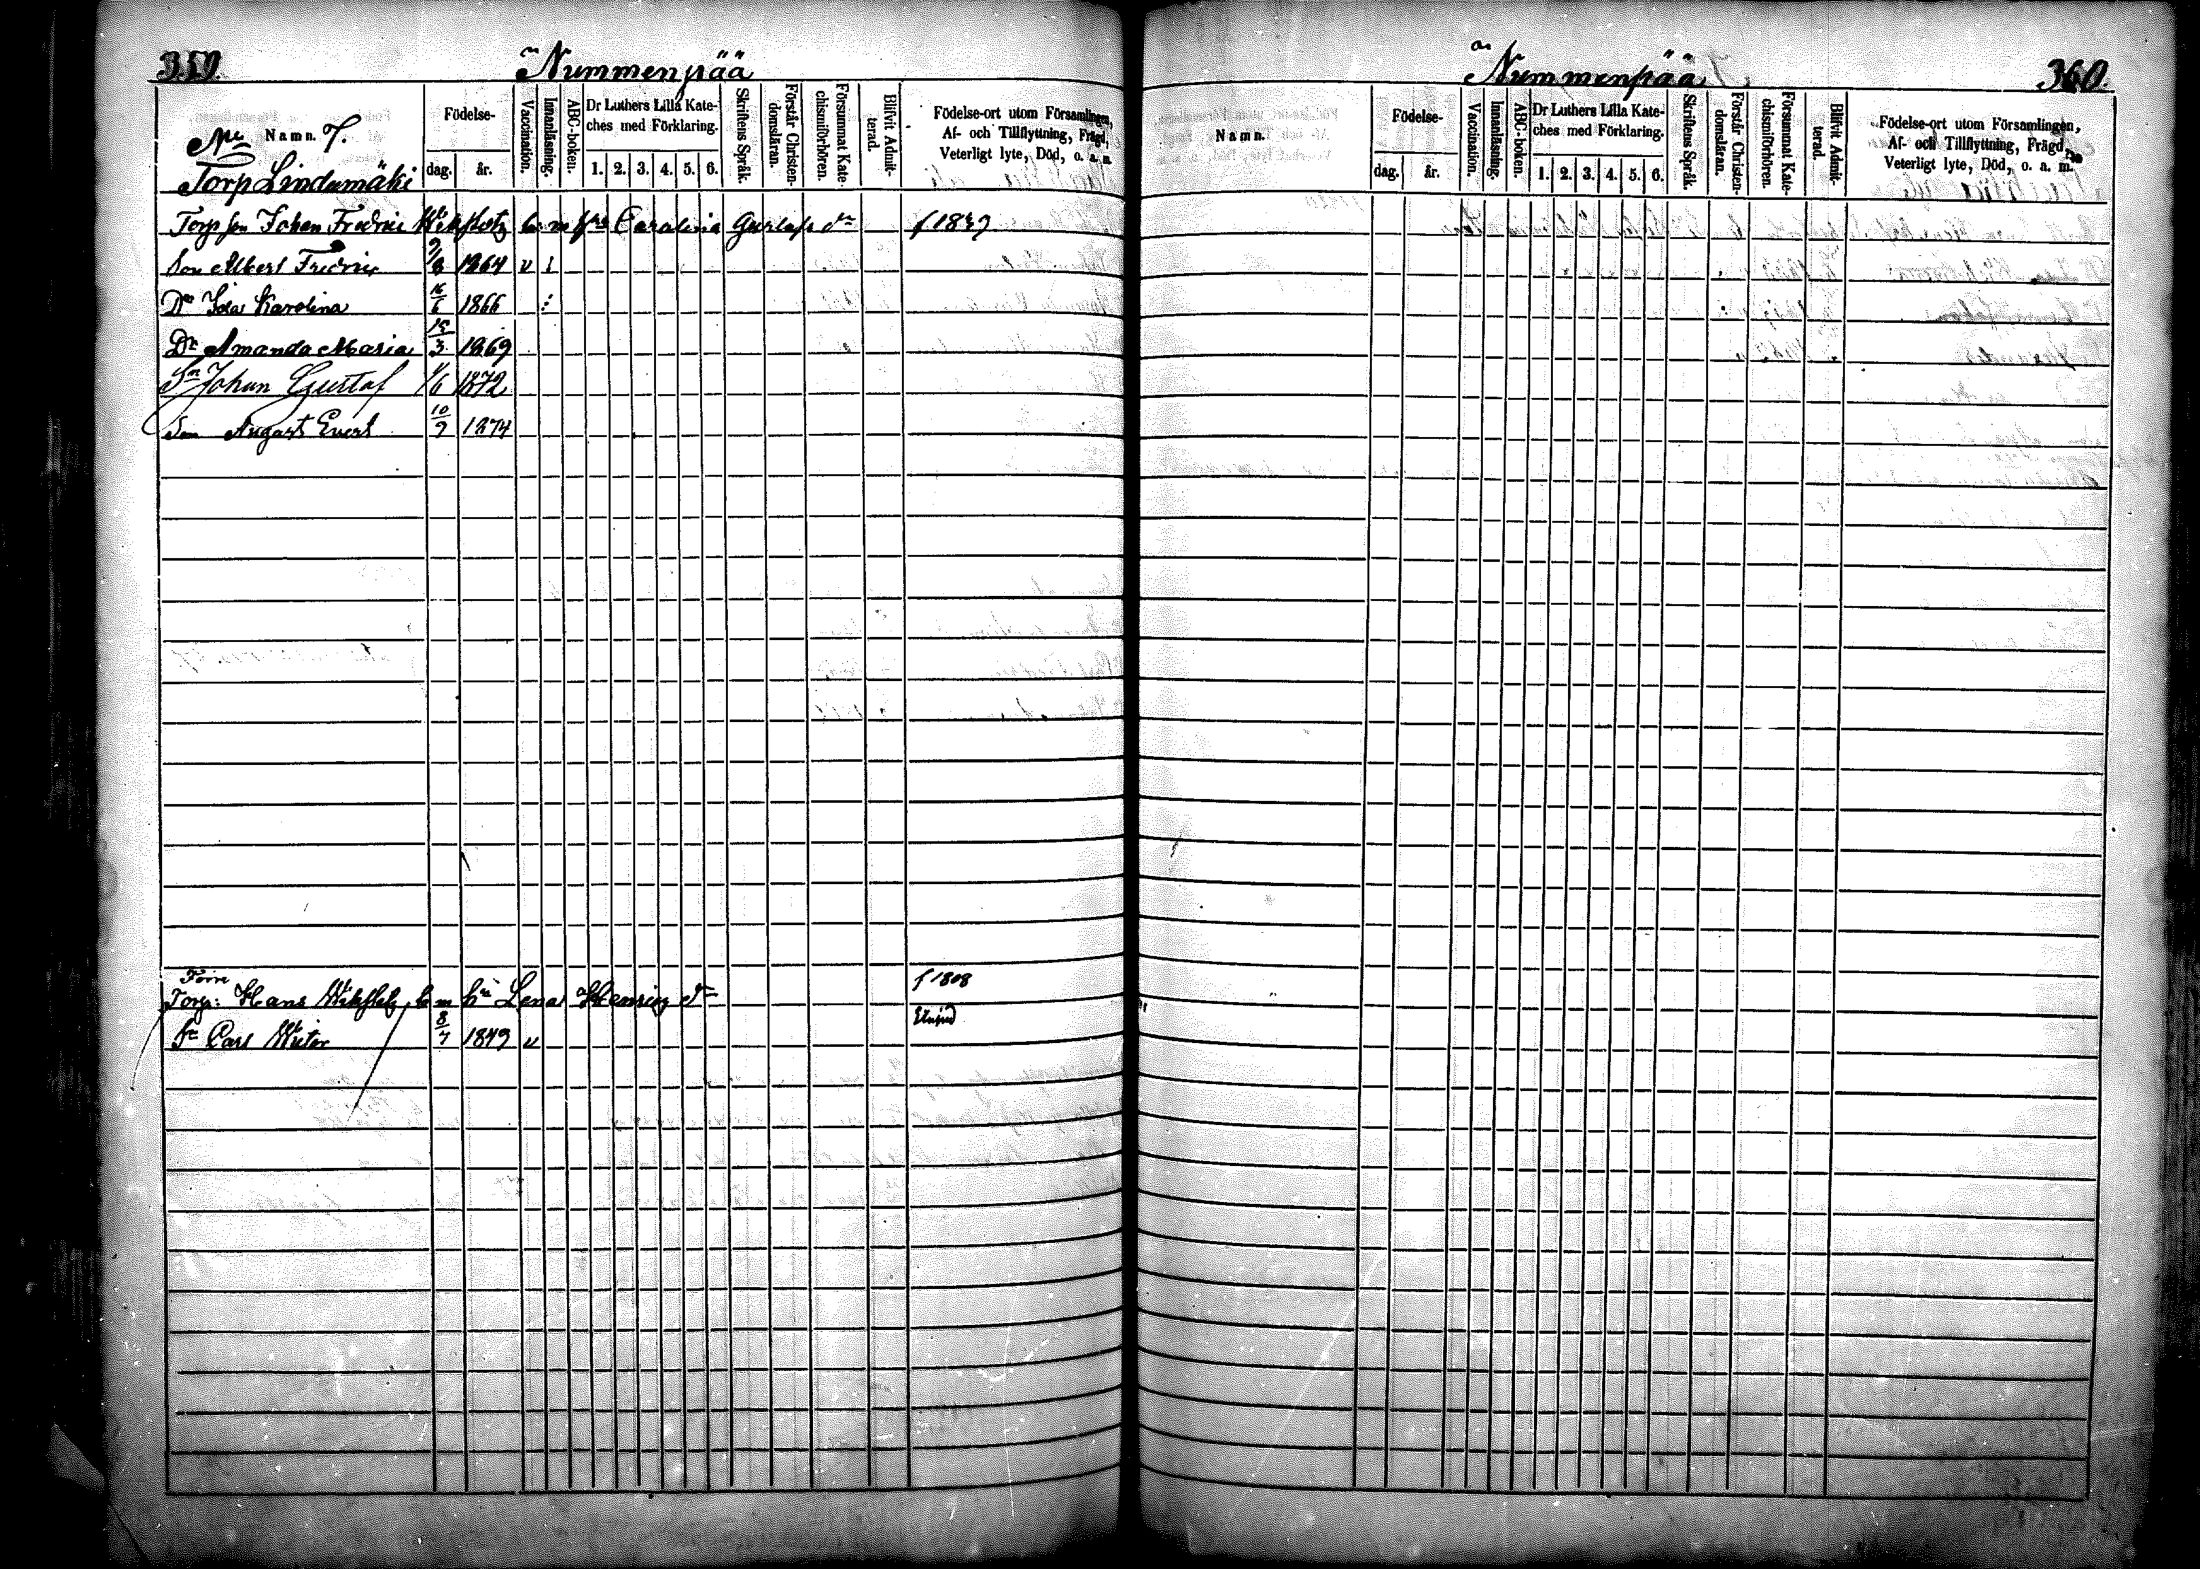 359.
Nummenpää
Namn.
Födelse-
dag.
år.
Vaccination.
Innanläsning.
ABC-boken.
Dr Luthers Lilla Kate-
ches med Förklaring.
1. 2. 3. 4. 5. 6.
Skriftens Språk.
Förstår Christen-
domsläran.
Försummat Kate-
chismiförhören.
Blifvit Admit-
terad.
Födelse-ort utom Församlingen,
Af- och Tillflyttning, Frägd,
Veterligt lyte, Död, o. a. m.
No 7.
Torp Lindumäki
Torp son Johan Fredric Carolina Gustafs dr
Son Albert Fredric 9/8 1864 v
Dr Ida Karolina 16/6 1866
Dr Amanda Maria 15/3 1869
Sn Johan Gustaf 1/6 1872
Son August Evert 10/9 1874
Förre f 1808
Torp: Hans h m hu Lena Henrics dr
Sn Carl Wictor 8/7 1849 v
Nummenpää
360.
Namn.
Födelse-
dag.
år.
Vaccination.
Innanläsning.
ABC-boken.
Dr Luthers Lilla Kate-
ches med Förklaring.
1. 2. 3. 4. 5. 6.
Skriftens Språk.
Förstår Christen-
domsläran.
Försummat Kate-
chismiförhören.
Blifvit Admit-
terad.
Födelse-ort utom Församlingen,
Af- och Tillflyttning, Frägd,
Veterligt lyte, Död, o. a. m.